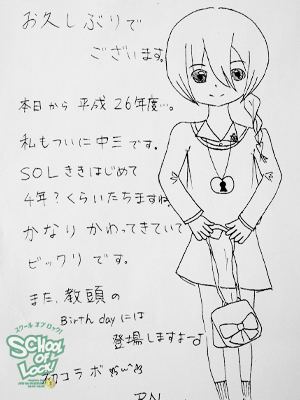 お久しぶりで
ございます。
本日から 平成 26年度…。
私もついに中三です。
SOLききはじめて
4年？くらいたちますね
かなり かわってきていて
ビックリです。
また、教頭の
Birth dayには
登場しますよーσ
スクール オブ ロック!
SCHOOL OF LOCK!
初コラボ
RN